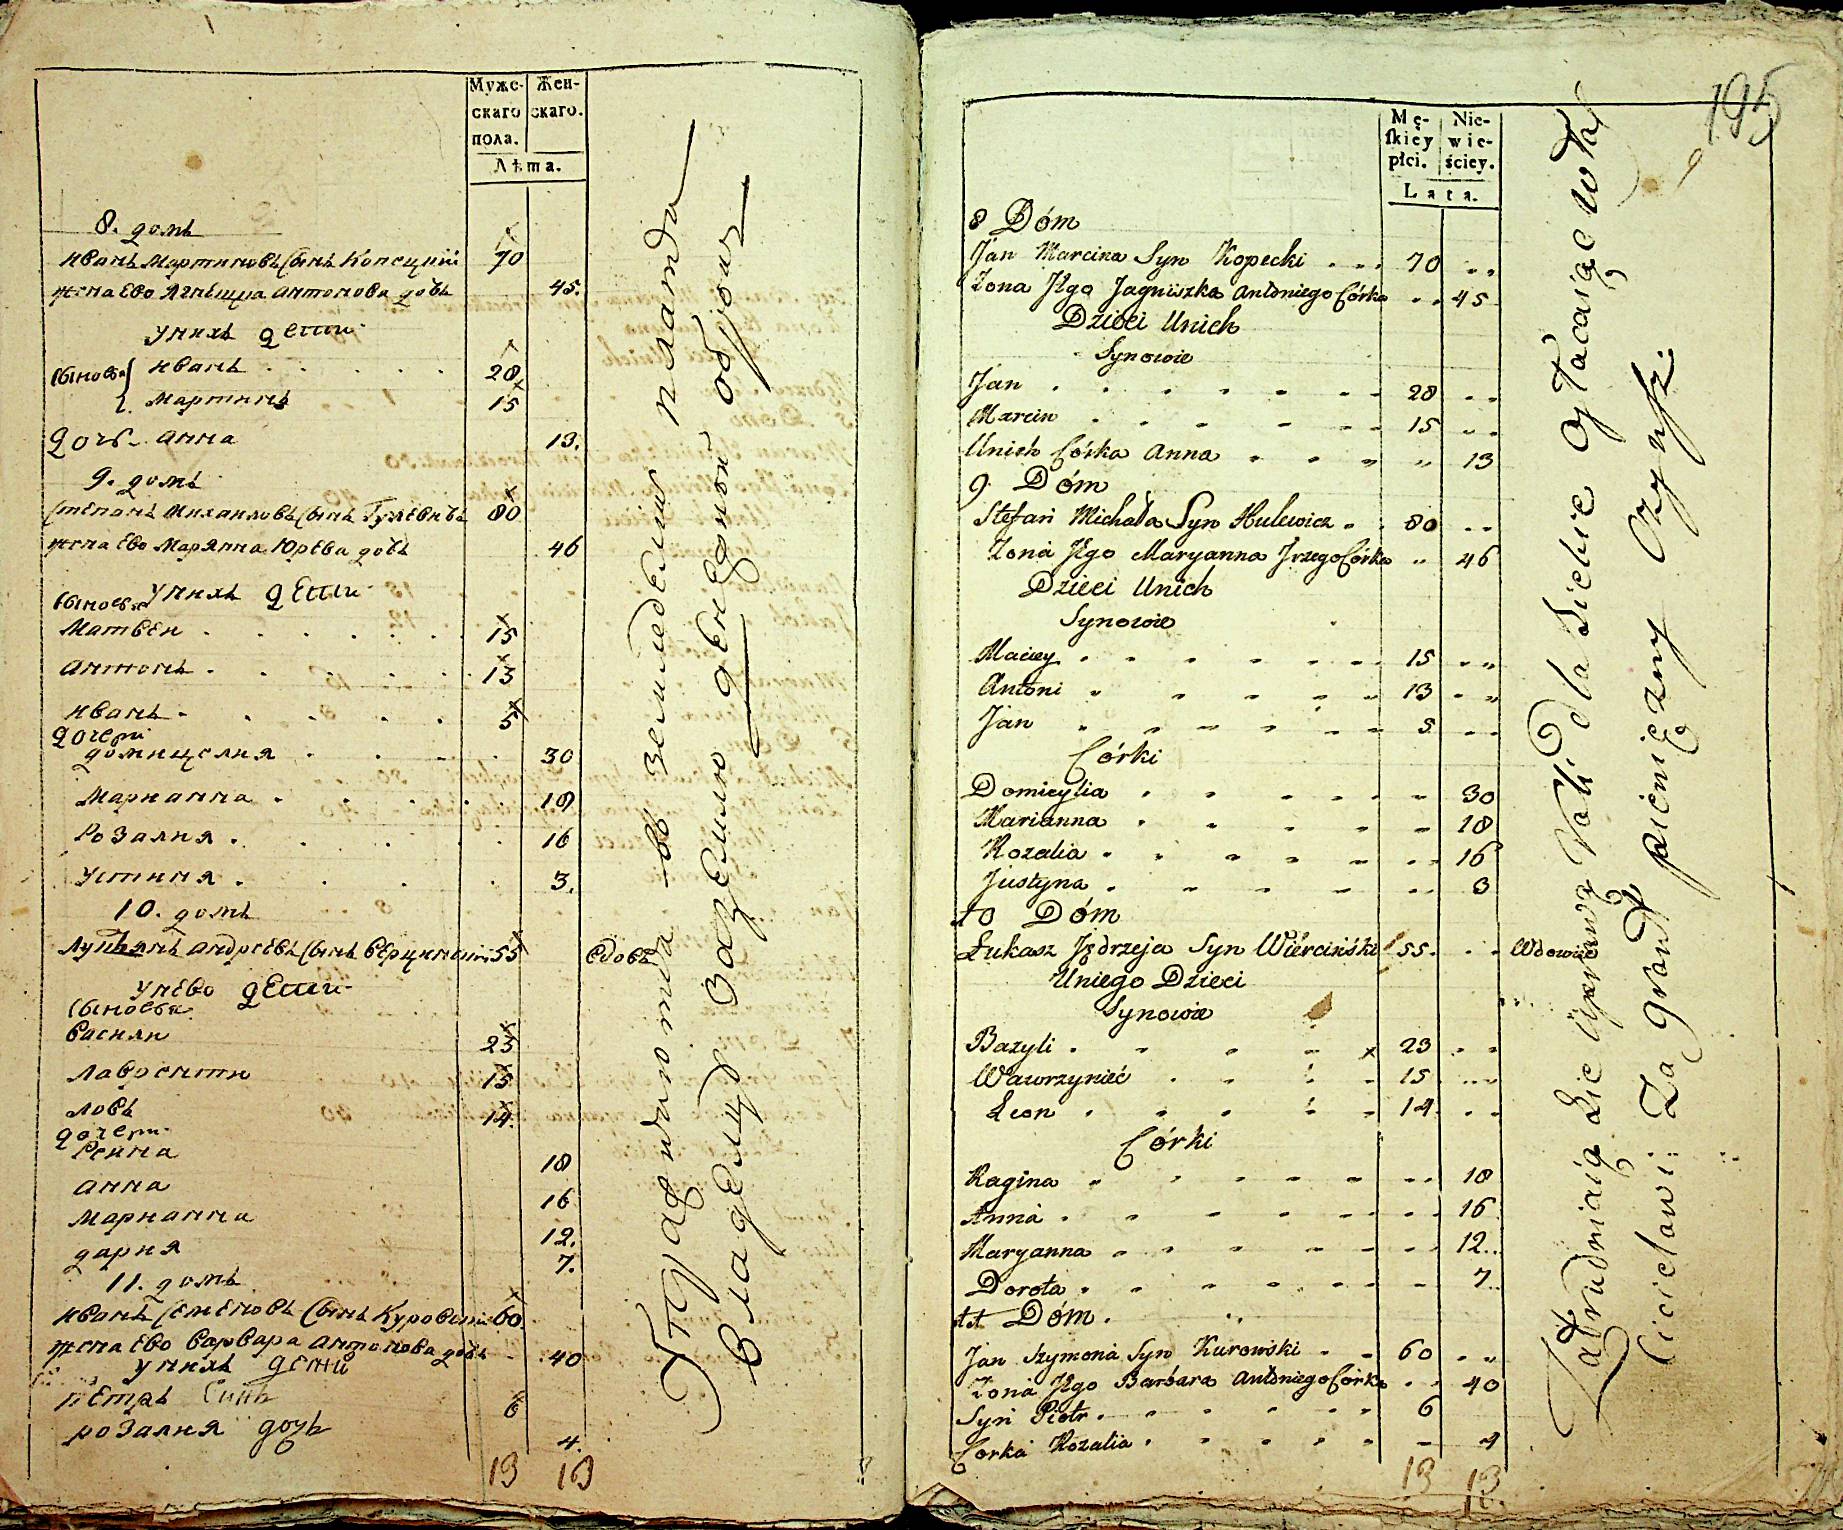 Муже-
скаго
пола.
Жен-
скаго.
Лѣта.
8. домъ
иванъ мартиновъ сынъ Копецкий 70
жена ево Агнешка антонова дочь 45.
уних дети
сыновья иванъ 28
мартинъ 15
дочь анна 13.
9. домъ
степанъ михаиловъ сынъ Гулевичъ 80
жена ево марянна Юрева дочь 46
уних дети
сыновья
матвеи 15
антонъ 13
иванъ 5
дочери
домицелия 30
марианна 18
розалия 16
устиния 3.
10. домъ
лукянъ андреевъ сынъ верцинский 55 вдовъ
унево дети
сыновья
василии 23
лаврентии 15
левъ 14
дочери
Регина 18
анна 16
марианна 12.
дария 7.
11. домъ
иванъ семеновъ сынъ Куровский 60.
жена ево варвара антонова дочь 40
уних дети
петръ синъ 6
розалия дочь 4.
13 13
владеящ за землю денежной
195
Mę-
ſkiey
płci.
Nie-
wie-
ściey.
Lata.
8 Dóm
Jan Marcina Syn Kopecki 70
Żona Jego Jagniszka Antoniego Córka 45
Dzieci Unich
Synowie
Jan 28
Marcin 15
Unich Córka Anna 13
9. Dóm
Stefan Michała Syn Hulewicz 80
Żona Jego Maryanna Jrzego Córka 46
Dzieci Unich
Synowie
Maciey 15
Antoni 13
Jan 5
Córki
Domicylia 30
Marianna 18
Rozalia 16
Justyna 3
10 Dóm
Łukasz Jędrzeja Syn Wierciński 55. Wdowiec
Uniego Dzieci
Synowie
Bazyli 23
Wawrzyniéc 15
Leon 14
Córki
Ragina 18
Anna 16
Maryanna 12
Dorota 7
11 Dóm
Jan Szymona Syn Kurowski 60
Żona Jego Barbara Antoniego Córka 40
Syn Piotr 6
Corka Rozalia 4
13 13
Zatrudniaią się uprawą Roli dla siebie opłacaiąc
Za grunt pieniężny czynsz.